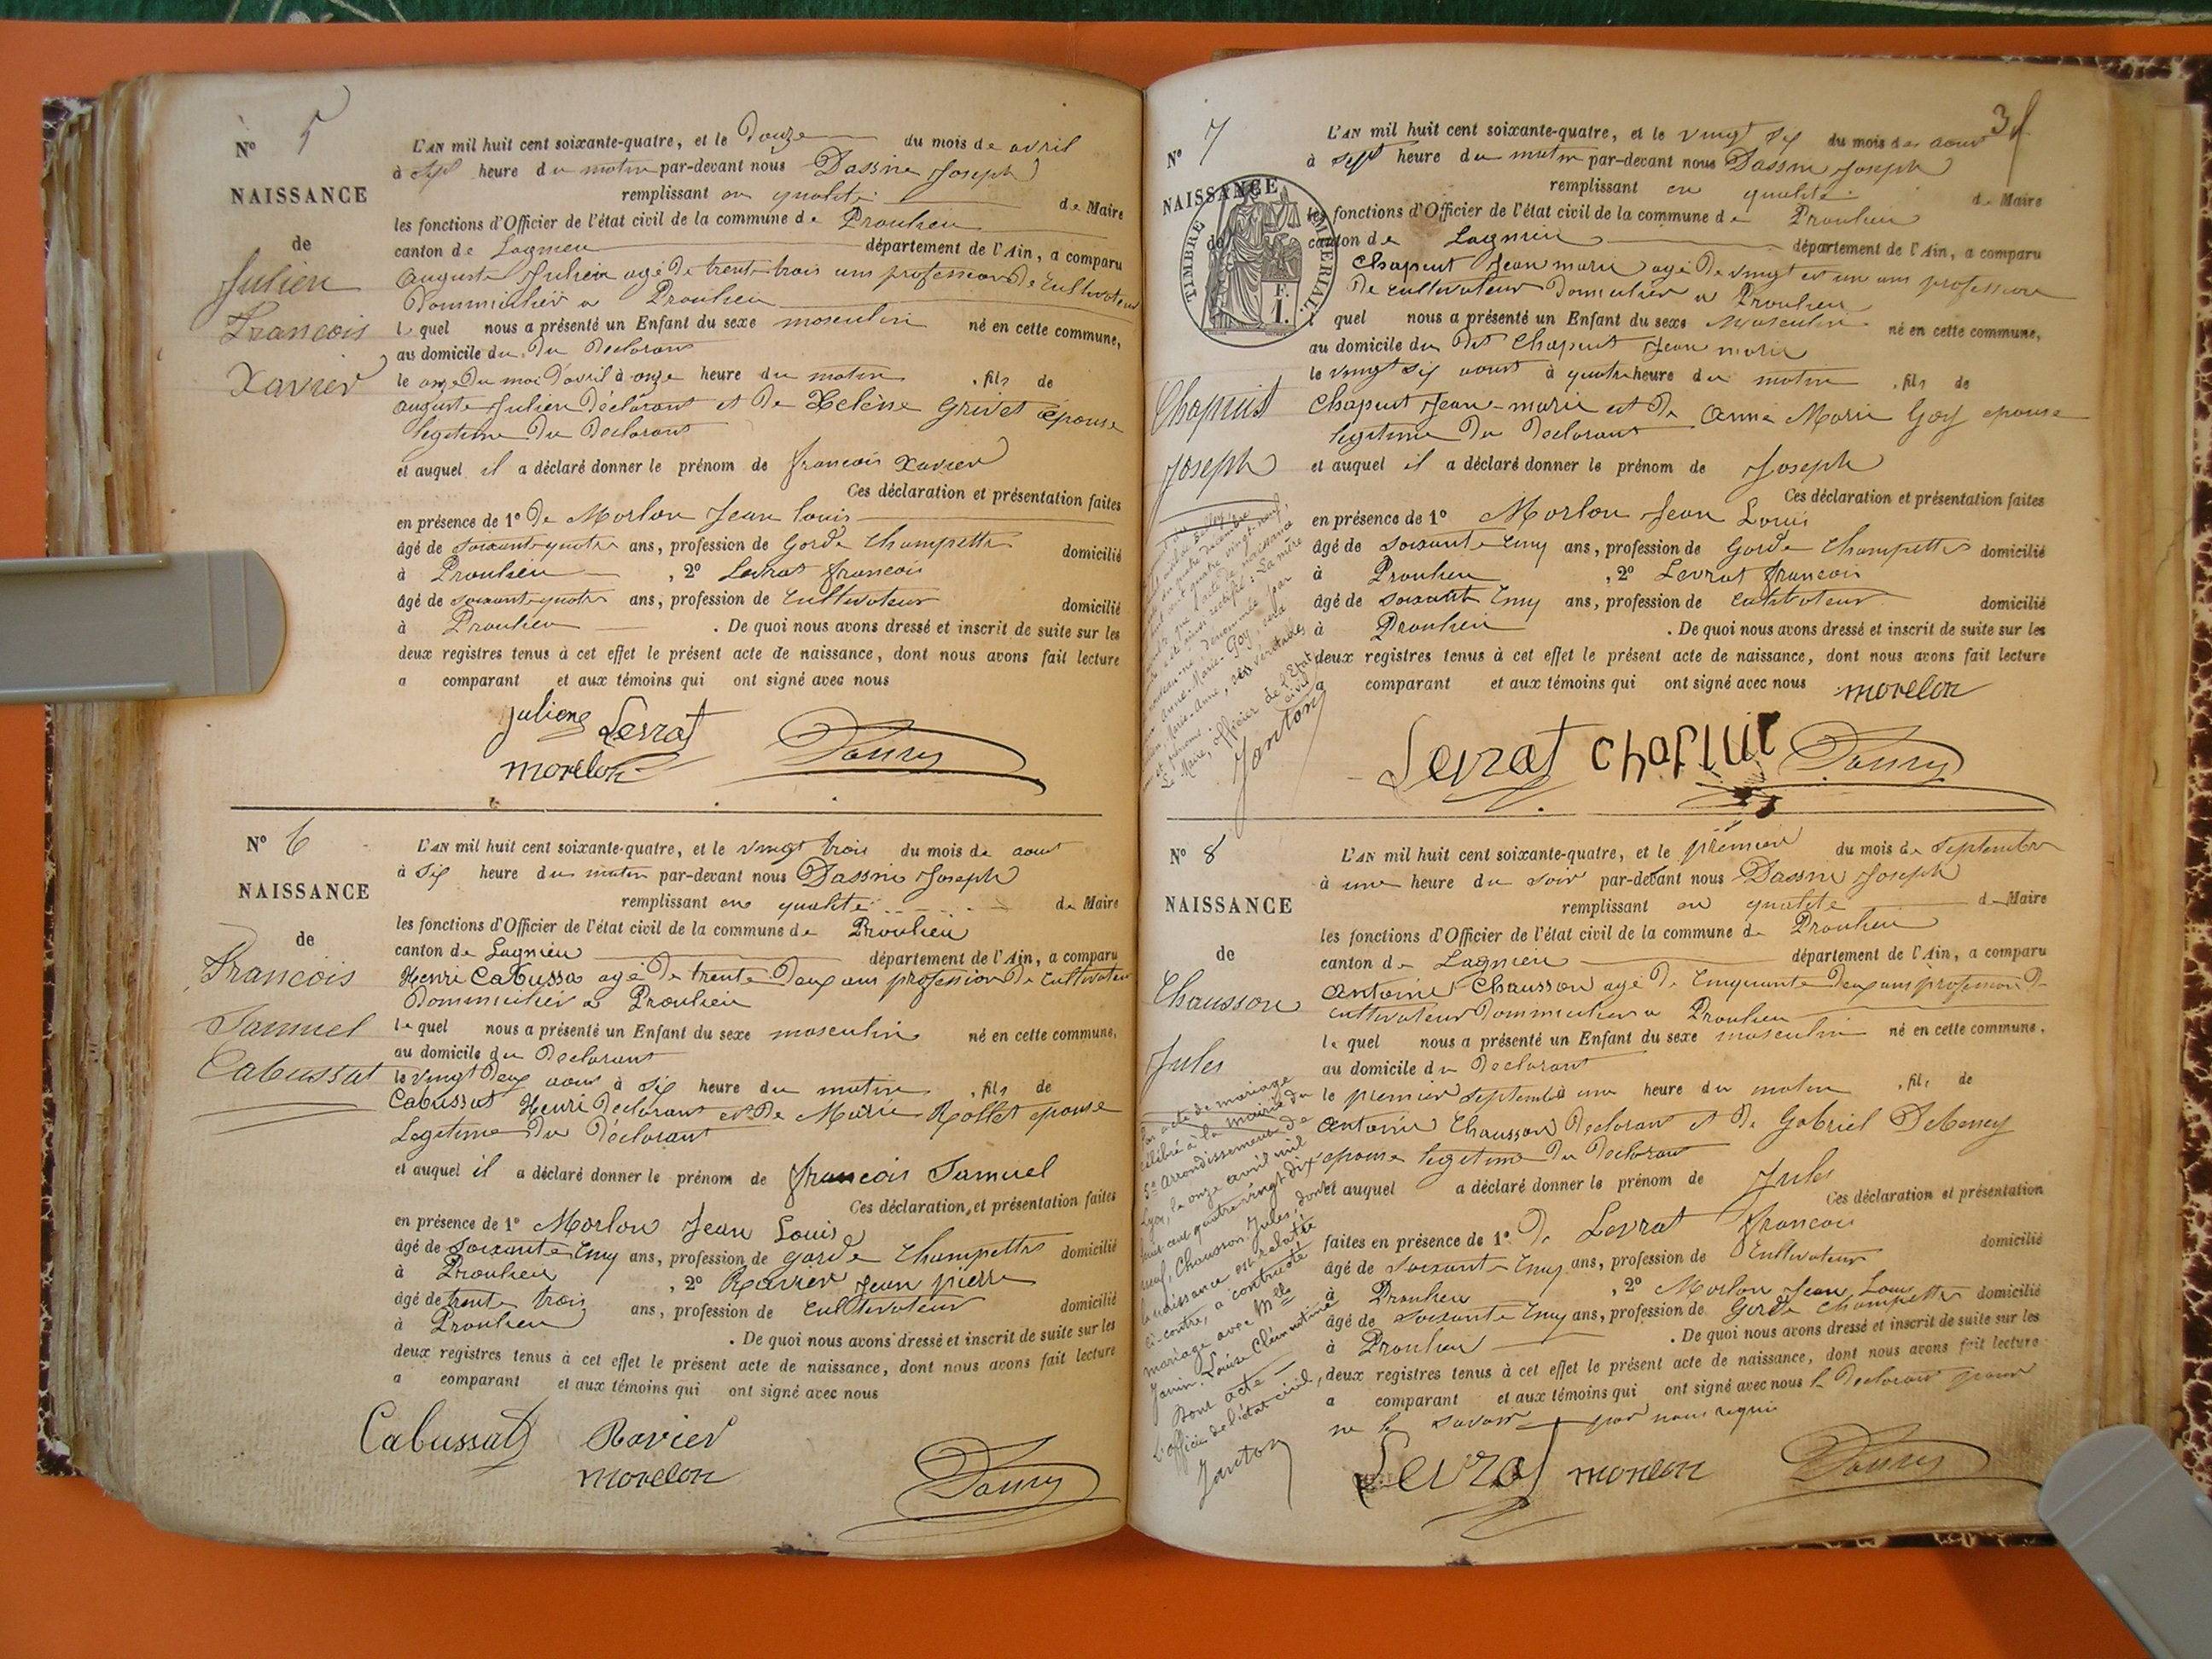 Nº 5
NAISSANCE
de
Julien
Francois
Xavier
L'AN mil huit cent soixante-quatre, et le Douze du mois de avril
à heure du matin par-devant nous Dassin Joseph
remplissant en qualité de Maire
les fonctions d'Officier de l'état civil de la commune de Proulieu
canton de Lagnieu département de l'Ain, a comparu
Auguste Julien agé de trente trois ans profession de Cultivateur
Dommicilier a Proulieu
lequel nous a présenté un Enfant du sexe masculin né en cette commune,
au domicile du Du Declarant
le onze Du moi D'avril à onze heure du matin , fils de
Auguste Julien Déclarant et De Helène Grivet épouse
legitime Du Declarant
et auquel il a déclaré donner le prénom de francois Xavier
Ces déclaration et présentation faites
en présence de 1º De Morlon Jean Louis
âgé de soixante quatre ans, profession de Garde Champettre domicilié
à Proulieu , 2º Levrat francois
âgé de soixante quatre ans, profession de Cultivateur domicilié
à Proulieu . De quoi nous avons dressé et inscrit de suite sur les
deux registres tenus à cet effet le présent acte de naissance, dont nous avons fait lecture
a comparant et aux témoins qui ont signé avec nous
Levrat
morelon
Nº 6
NAISSANCE
de
Francois
Samuel
Cabussat
L'AN mil huit cent soixante-quatre, et le vingt trois du mois de aout
à six heure du matin par-devant nous Dassin Joseph
remplissant en qualité de Maire
les fonctions d'Officier de l'état civil de la commune de Proulieu
canton de Lagnieu département de l'Ain, a comparu
Henri Cabussa agé De trente Deux ans profession De Cultivateur
Dommicilier a Proulieu
lequel nous a présenté un Enfant du sexe masculin né en cette commune,
au domicile du Declarant
le vingt Deux aout à six heure du matin , fils de
Cabussat Henri Declarant et De Marie Rollet epouse
Legetime Du Déclarant
et auquel il a déclaré donner le prénom de francois Samuel
Ces déclaration et présentation faites
en présence de 1º Morlon Jean Louis
âgé de Soixante Cinq ans, profession de garde Champettre domicilié
à Proulieu , 2º Ravier Jean pierre
âgé de trente trois ans, profession de Cultivateur domicilié
à Proulieu . De quoi nous avons dressé et inscrit de suite sur les
deux registres tenus à cet effet le présent acte de naissance, dont nous avons fait lecture
a comparant et aux témoins qui ont signé avec nous
Cabussat Ravier
morelon
Nº 7
NAISSANCE
de
TIMBRE IMPERIAL
F.
1.
Chapuist
Joseph
L'AN mil huit cent soixante-quatre, et le vingt six du mois de aout
à sept heure du matin par-devant nous Dassin Joseph
remplissant en qualité de Maire
les fonctions d'Officier de l'état civil de la commune de Proulieu
canton de Lagnieu département de l'Ain, a comparu
Chapuit Jean marie agé De vingt et un ans profession
De cultivateur Domicilier a Proulieu
quel nous a présenté un Enfant du sexe Masculin né en cette commune,
au domicile du Dit Chapuit Jean marie
le vingt six aout à quatre heure du matin , fils de
Chapuit Jean-marie et De Anne Marie Goy epouse
legitime Du Declarant
et auquel il a déclaré donner le prénom de Joseph
Ces déclaration et présentation faites
en présence de 1º Morlon Jean Louis
âgé de soixante Cinq ans, profession de Garde Champettre domicilié
à Proulieu , 2º Levrat francois
âgé de soixante Cinq ans, profession de Cultivateur domicilié
à Proulieu . De quoi nous avons dressé et inscrit de suite sur les
deux registres tenus à cet effet le présent acte de naissance, dont nous avons fait lecture
a comparant et aux témoins qui ont signé avec nous morelon
Levrat
quatre décembre
quatre vingt-neuf,
l'acte de naissance
ainsi rectifié : La mère
dénommée par
Anne-Marie Goy, sera
Marie-Anne, ses véritables
et prénoms.
Le Maire, officier de l'Etat
civil
Janton
Nº 8
NAISSANCE
de
Chausson
Jules
L'AN mil huit cent soixante-quatre, et le premier du mois de Septembre
à une heure du soir par-devant nous Dassin Joseph
remplissant en qualité de Maire
les fonctions d'Officier de l'état civil de la commune de Proulieu
canton de Lagnieu département de l'Ain, a comparu
Antoine Chausson agé De Cinquante Deux ans profession De
cultivateur Dommicilier a Proulieu
lequel nous a présenté un Enfant du sexe masculin né en cette commune,
au domicile du Declarant
le premier Septembre à une heure du matin , fils de
Antoine Chausson Declarant et De Gabriel Debeney
epouse legitime Du Declarant
et auquel a déclaré donner le prénom de Jules
Ces déclaration et présentation
faites en présence de 1º De Levrat francois
âgé de soixante Cinq ans, profession de Cultivateur domicilié
à Proulieu , 2º Morlon Jean Louis
âgé de soixante Cinq ans, profession de Garde Champettre domicilié
à Proulieu . De quoi nous avons dressé et inscrit de suite sur les
deux registres tenus à cet effet le présent acte de naissance, dont nous avons fait lecture
a comparant et aux témoins qui ont signé avec nous le Declarant pour
ne le savoir par nous requis
Levrat morelon
Par acte de mariage
célébré à la mairie du
5e arrondissement de
Lyon, le onze avril mil
huit cent quatre vingt dix
neuf, Chausson Jules, dont
la naissance est relatée
ci-contre, a contracté
mariage avec Mlle
Janin, Louise Clémentine
Dont acte
L'officier de l'état civil,
Janton